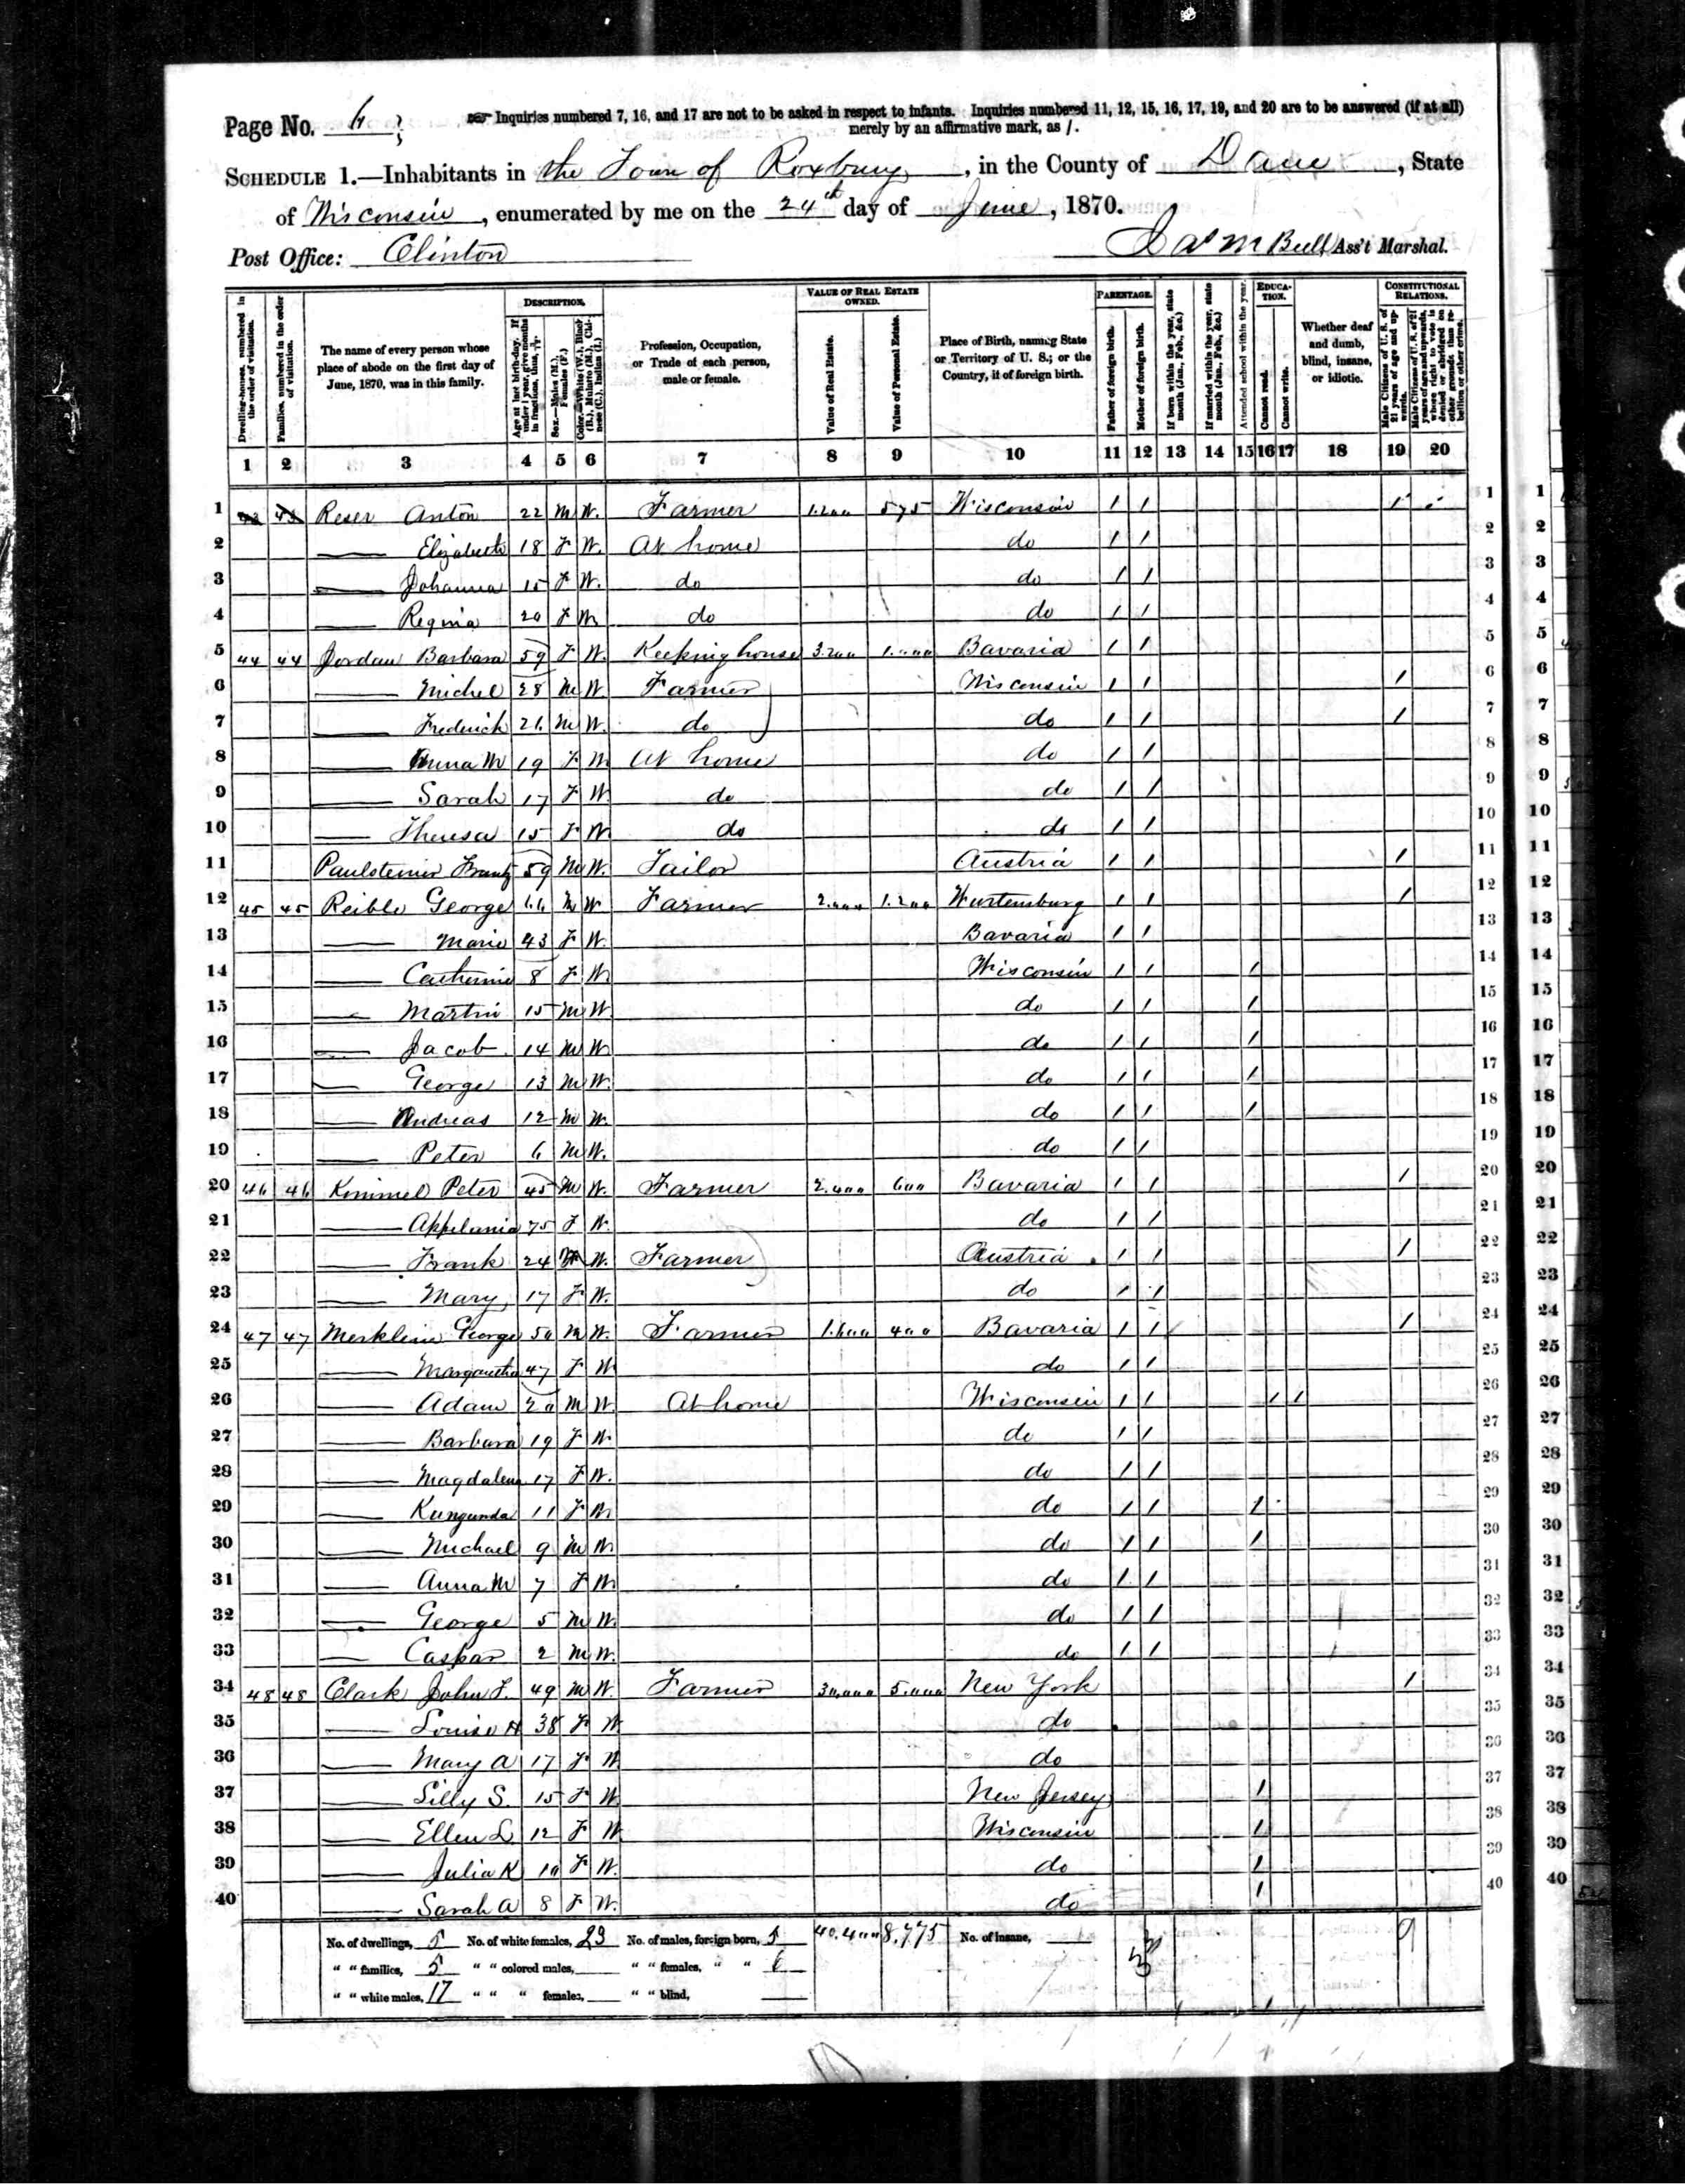 Page No. 6
Inquiries numbered 7, 16, and 17 are not to be asked in respect to infants. Inquiries numbered 11, 12, 15, 16, 17, 19, and 20 are to be answered (if at all)
merely by an affirmative mark, as /.
SCHEDULE 1.—Inhabitants in the Town of Roxbury, in the County of Dane, State
of Wisconsin, enumerated by me on the 24th day of June, 1870.
Post Office: Clinton
Bull, Ass't Marshal.
DESCRIPTION.
VALUE OF REAL ESTATE OWNED.
PARENTAGE.
EDUCATION.
CONSTITUTIONAL RELATIONS.
Dwelling-houses, numbered in the order of visitation.
Families, numbered in the order of visitation.
The name of every person whose place of abode on the first day of June, 1870, was in this family.
Age at last birth-day. If under 1 year, give months in fractions, thus,
Sex.—Males (M.), Females (F.)
Color.—White (W.), Black (B.), Mulatto (M.), Chinese (C.), Indian (I.)
Profession, Occupation, or Trade of each person, male or female.
Value of Real Estate.
Value of Personal Estate.
Place of Birth, naming State or Territory of U. S.; or the Country, if of foreign birth.
Father of foreign birth.
Mother of foreign birth.
If born within the year, state month (Jan., Feb., &c.)
If married within the year, state month (Jan., Feb., &c.)
Attended school within the year.
Cannot read.
Cannot write.
Whether deaf and dumb, blind, insane, or idiotic.
Male Citizens of U. S. of 21 years of age and upwards.
Male Citizens of U. S. of 21 years of age and upwards, whose right to vote is denied or abridged on other grounds than rebellion or other crime.
1 2 3 4 5 6 7 8 9 10 11 12 13 14 15 16 17 18 19 20
1 43 43 Reser Anton 22 M W. Farmer 1.200 575 Wisconsin / / / / 1
2 — Elizabeth 18 F W. At home do / / 2
3 — Johanna 15 F W. do do / / 3
4 — Regina 20 F W do do / / 4
5 44 44 Jordan Barbara 59 F W. Keeping house 3.200 1.000 Bavaria / / 5
6 — Michel 28 M W. Farmer Wisconsin / / / 6
7 — Frederick 21. M W. do do / / / 7
8 — Anna M 19 F W At home do / / 8
9 — Sarah 17 F W do do / / 9
10 — Theresa 15 F W do do / / 10
11 Paulsteiner Frantz 59 M W. Tailor Austria / / / 11
12 45 45 Reible George 66 M W Farmer 2.000 1.200 Wurtemburg / / / 12
13 — Marie 43 F W. Bavaria / / 13
14 — Catherine 8 F W. Wisconsin / / / 14
15 — Martin 15 M W do / / / 15
16 — Jacob 14 M W do / / / 16
17 — George 13 M W. do / / / 17
18 — Andreas 12 M W. do / / / 18
19 — Peter 6 M W. do / / 19
20 46 46 Kimmel Peter 45 M W. Farmer 2.400 600 Bavaria / / / 20
21 — 75 F W. do / / 21
22 — Frank 24 M W. Farmer Austria / / / 22
23 — Mary 17 F W. do / / 23
24 47 47 Merklein George 50 M W. Farmer 1.600 400 Bavaria / / / 24
25 — Margaretha 47 F W do / / 25
26 — Adam 20 M W. At home Wisconsin / / / / 26
27 — Barbara 19 F W. do / / 27
28 — Magdalena 17 F W. do / / 28
29 — Kungunda 11 F W do / / / 29
30 — Michael 9 M W do / / / 30
31 — Anna M 7 F W do / / 31
32 — George 5 M W. do / / 32
33 — Caspar 2 M W. do / / 33
34 48 48 Clark John F. 49 M W. Farmer 30.000 5.000 New York / 34
35 — Louise H 38 F W do 35
36 — Mary A 17 F W. do 36
37 — Lilly S. 15 F W New Jersey / 37
38 — Ellen L 12 F W Wisconsin / 38
39 — Julia K 10 F W. do / 39
40 — Sarah A 8 F W. do / 40
No. of dwellings, 5 No. of white females, 23 No. of males, foreign born, 5 40.400 8,775 No. of insane, 9
" " families, 5 " " colored males, " " females, " " 6
" " white males, 17 " " " females, " " blind,